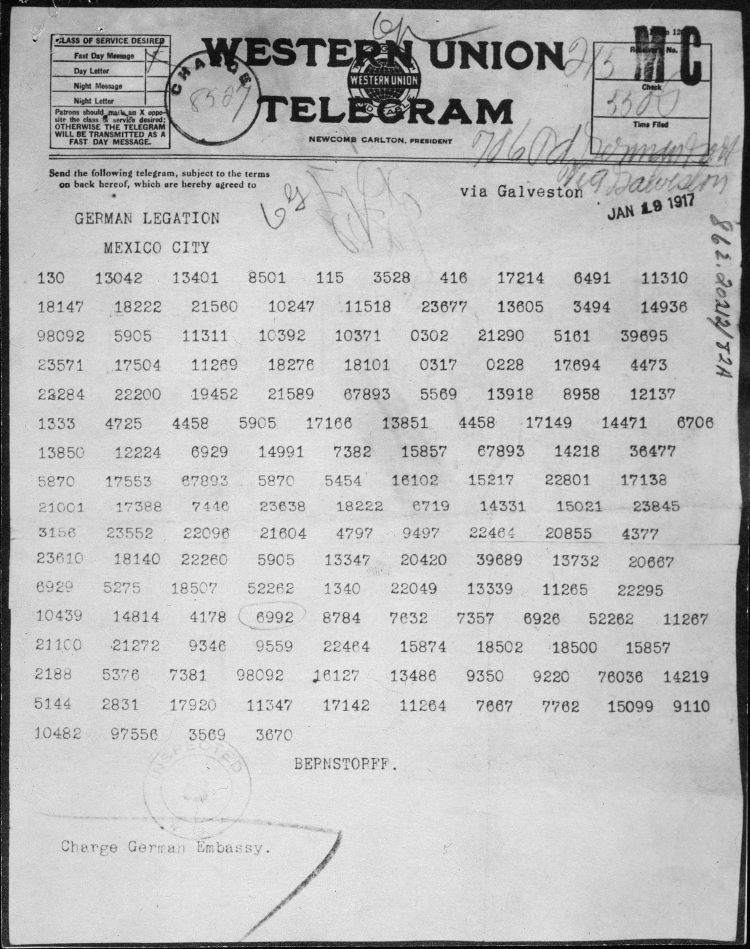 CLASS OF SERVICE DESIRED
Fast Day Message X
Day Letter
Night Message
Night Letter
Patrons should mark an X oppo-
site the class of service desired;
OTHERWISE THE TELEGRAM
WILL BE TRANSMITTED AS A
FAST DAY MESSAGE.
CHARGE
WESTERN UNION
WESTERN UNION
TELEGRAM
NEWCOMB CARLTON, PRESIDENT
Receiver's No.
M C
Check
Time Filed
Send the following telegram, subject to the terms
on back hereof, which are hereby agreed to
via Galveston
via Galveston
JAN 19 1917
GERMAN LEGATION
MEXICO CITY
862.20212/82A
130 13042 13401 8501 115 3528 416 17214 6491 11310
18147 18222 21560 10247 11518 23677 13605 3494 14936
98092 5905 11311 10392 10371 0302 21290 5161 39695
23571 17504 11269 18276 18101 0317 0228 17694 4473
22284 22200 19452 21589 67893 5569 13918 8958 12137
1333 4725 4458 5905 17166 13851 4458 17149 14471 6706
13850 12224 6929 14991 7382 15857 67893 14218 36477
5870 17553 67893 5870 5454 16102 15217 22801 17138
21001 17388 7446 23638 18222 6719 14331 15021 23845
3156 23552 22096 21604 4797 9497 22464 20855 4377
23610 18140 22260 5905 13347 20420 39689 13732 20667
6929 5275 18507 52262 1340 22049 13339 11265 22295
10439 14814 4178 6992 8784 7632 7357 6926 52262 11267
21100 21272 9346 9559 22464 15874 18502 18500 15857
2188 5376 7381 98092 16127 13486 9350 9220 76036 14219
5144 2831 17920 11347 17142 11264 7667 7762 15099 9110
10482 97556 3569 3670
BERNSTORFF.
INSPECTED
Charge German Embassy.